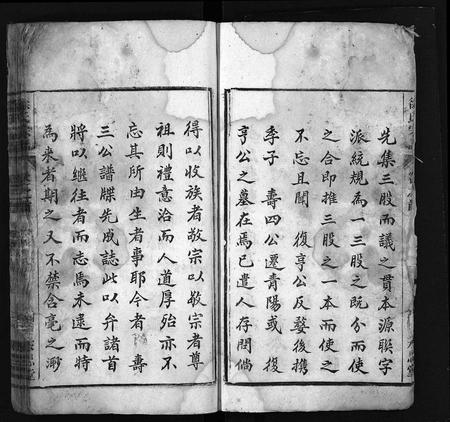 先集三股而議之貫本源聯字
派統規為一三股之既分而使
之合即推三股之一本而使之
不忘且聞 復亨公反發後攜
季子 壽四公遷青陽或 復
亨公之墓在焉已遣人存問倘
得以收族者敬宗以敬宗者尊
祖則禮意洽而人道厚殆亦不
忘其所由生者事耶今者 壽
三公譜牒先成誌此以弁諸首
將以繼往者而志焉未逮而特
為來者期之又不禁含毫之渺